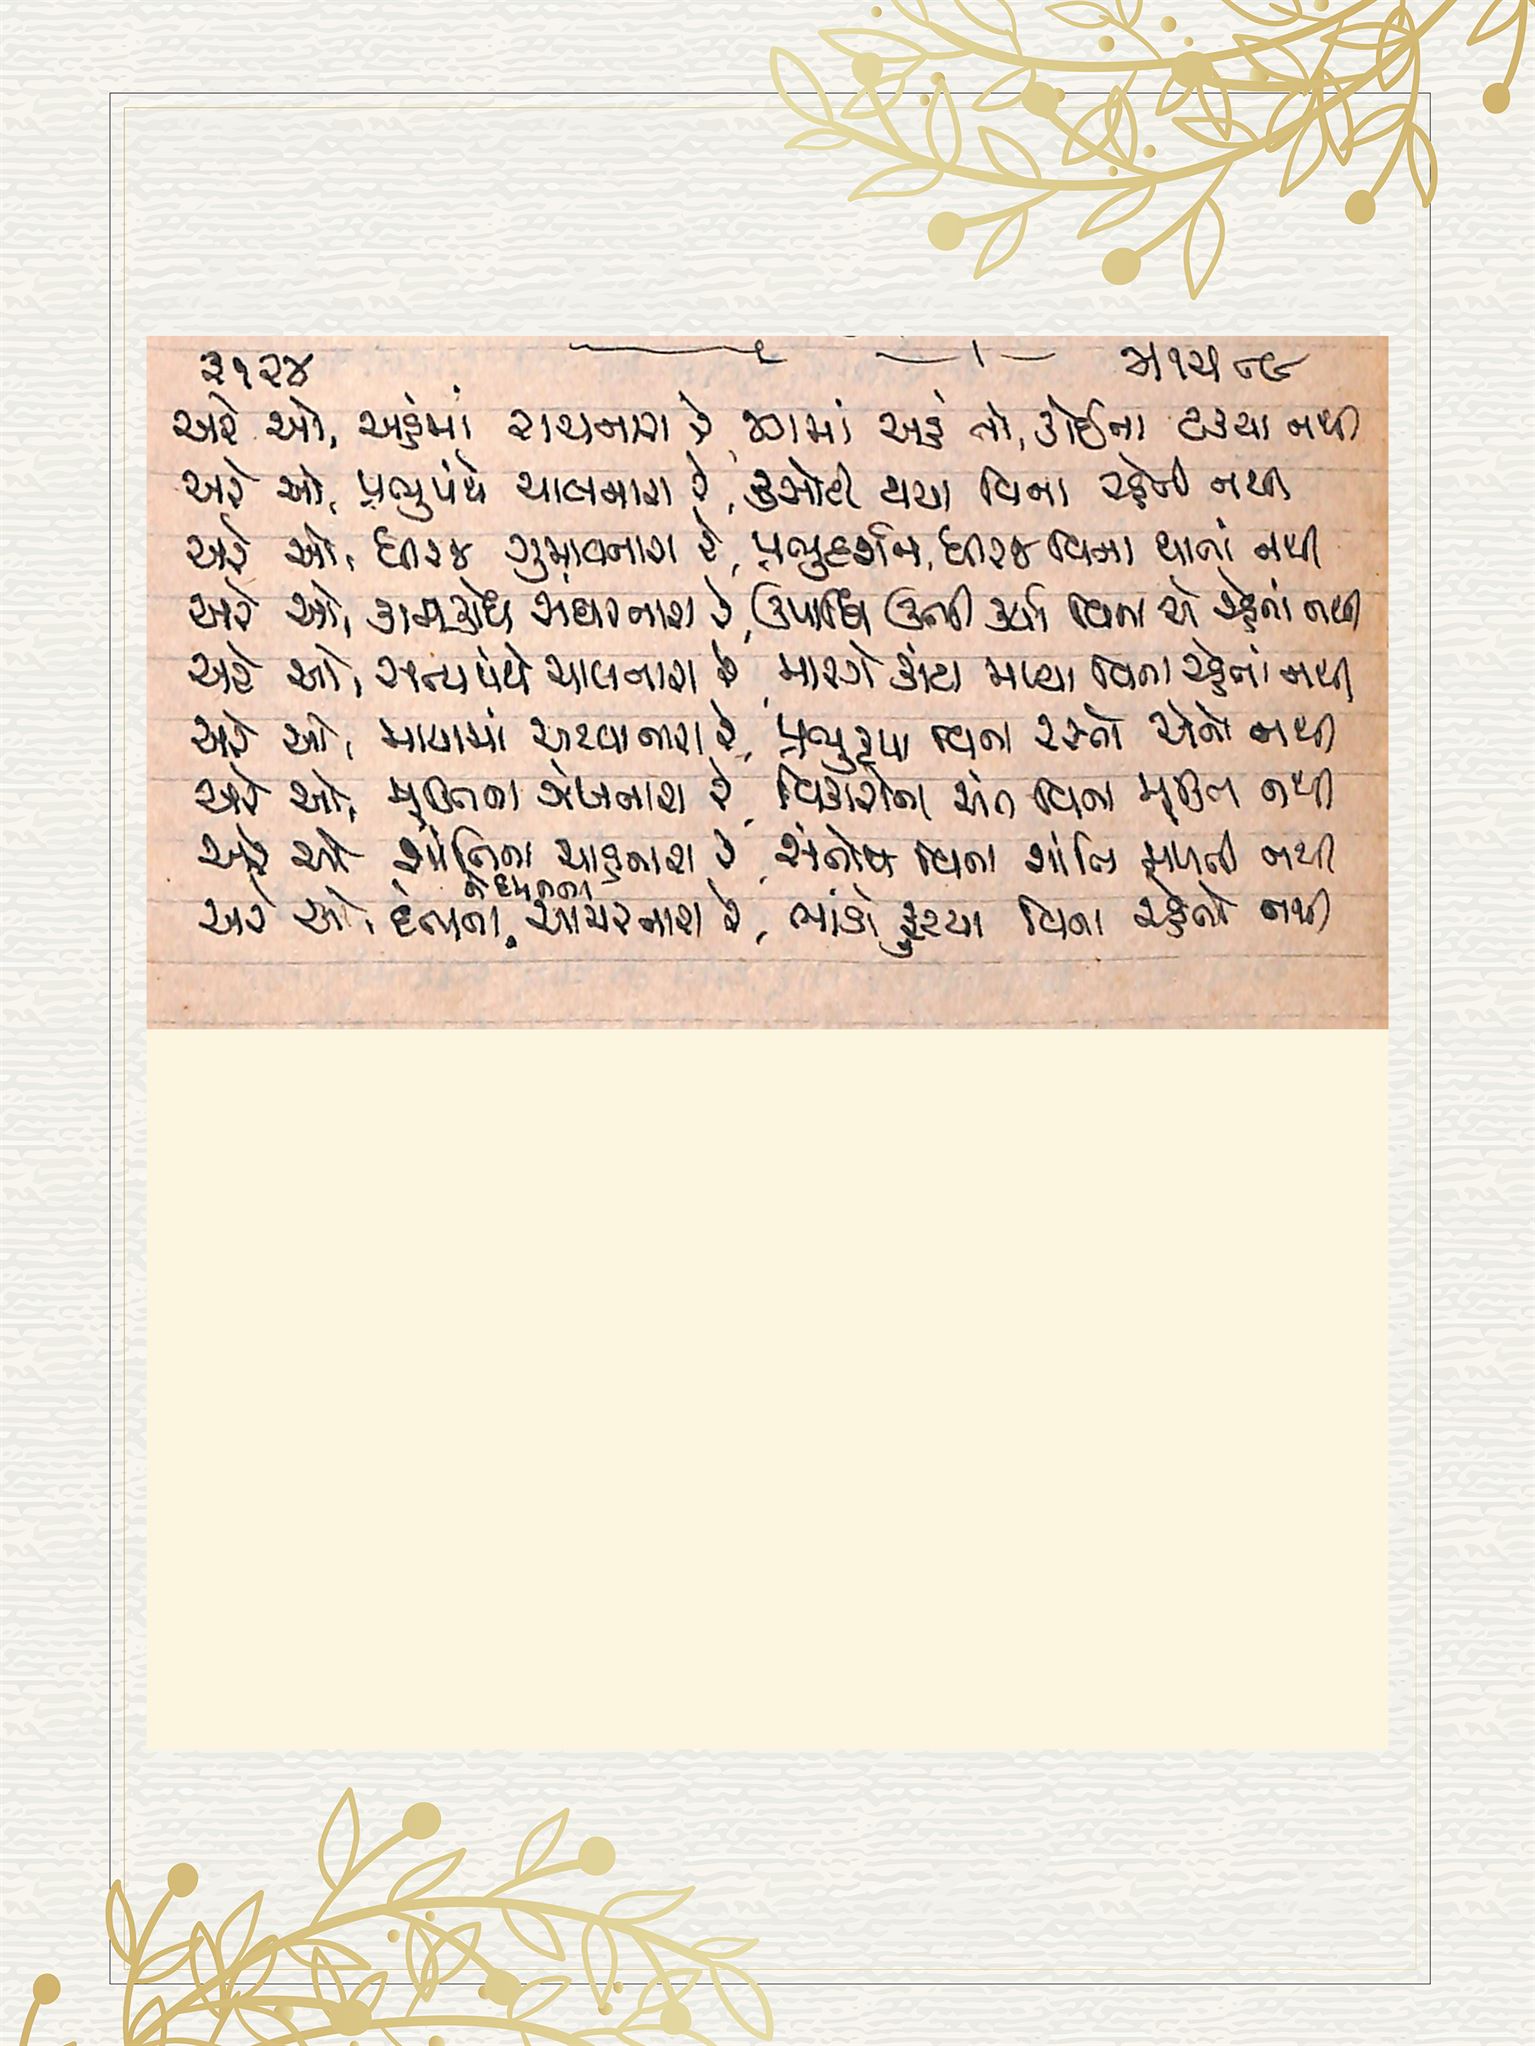 ૩૧૨૪
અરે ઓ, અહંમાં રાચનારા રે, જગમાં અહં તો, કોઈના ટક્યા નથી
અરે ઓ, પ્રભુપંથે ચાલનારા રે, કસોટી થયા વિના રહેતી નથી
અરે ઓ, ધીરજ ગુમાવનારા રે, પ્રભુદર્શન, ધીરજ વિના થાતાં નથી
અરે ઓ, કામક્રોધ સંઘરનારા રે, ઉપાધિ ઊભી કર્યા વિના એ રહેતાં નથી
અરે ઓ, સત્યપંથે ચાલનારા રે, મારગે કાંટા મળ્યા વિના રહેતાં નથી
અરે ઓ, માયામાં અટવાનારા રે, પ્રભુકૃપા વિના રસ્તો એનો નથી
અરે ઓ, મુક્તિના ઝંખનારા રે, વિકારોના અંત વિના મુક્તિ નથી
અરે ઓ શાંતિના ચાહનારા રે, સંતોષ વિના શાંતિ મળતી નથી
અરે ઓ, દંભના, ને દમનના આચરનારા રે, ભાંડો ફૂટયા વિના રહેતો નથી